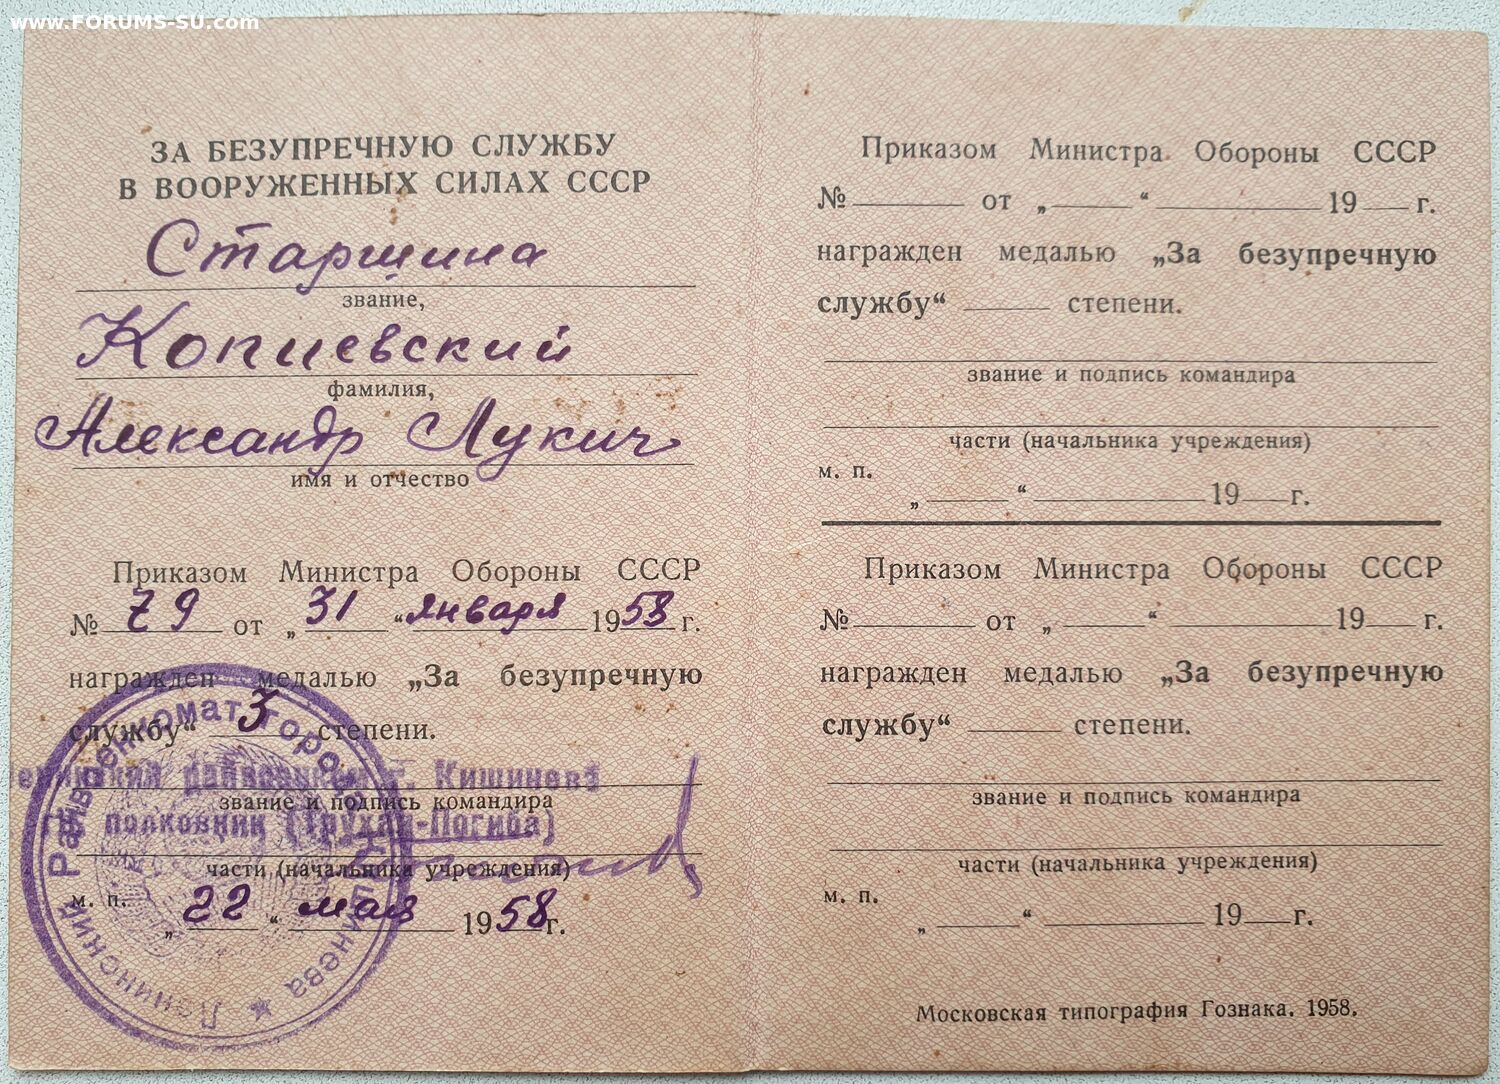 www.FORUMS-SU.com
ЗА БЕЗУПРЕЧНУЮ СЛУЖБУ
В ВООРУЖЕННЫХ СИЛАХ СССР
Старшина
звание,
Копиевский
фамилия,
Александр Лукич
имя и отчество
Приказом Министра Обороны СССР
№ 79 от „31“ января 1958 г.
награжден медалью „За безупречную
службу“ 3 степени.
райвоенком г. Кишинева
звание и подпись командира
полковник (Трухан-Погиба)
части (начальника учреждения)
м. п.
„22“ мая 1958 г.
Ленинский Райвоенкомат города Кишинева
Приказом Министра Обороны СССР
№ от „ “ 19 г.
награжден медалью „За безупречную
службу“ степени.
звание и подпись командира
части (начальника учреждения)
м. п.
„ “ 19 г.
Приказом Министра Обороны СССР
№ от „ “ 19 г.
награжден медалью „За безупречную
службу“ степени.
звание и подпись командира
части (начальника учреждения)
м. п.
„ “ 19 г.
Московская типография Гознака. 1958.